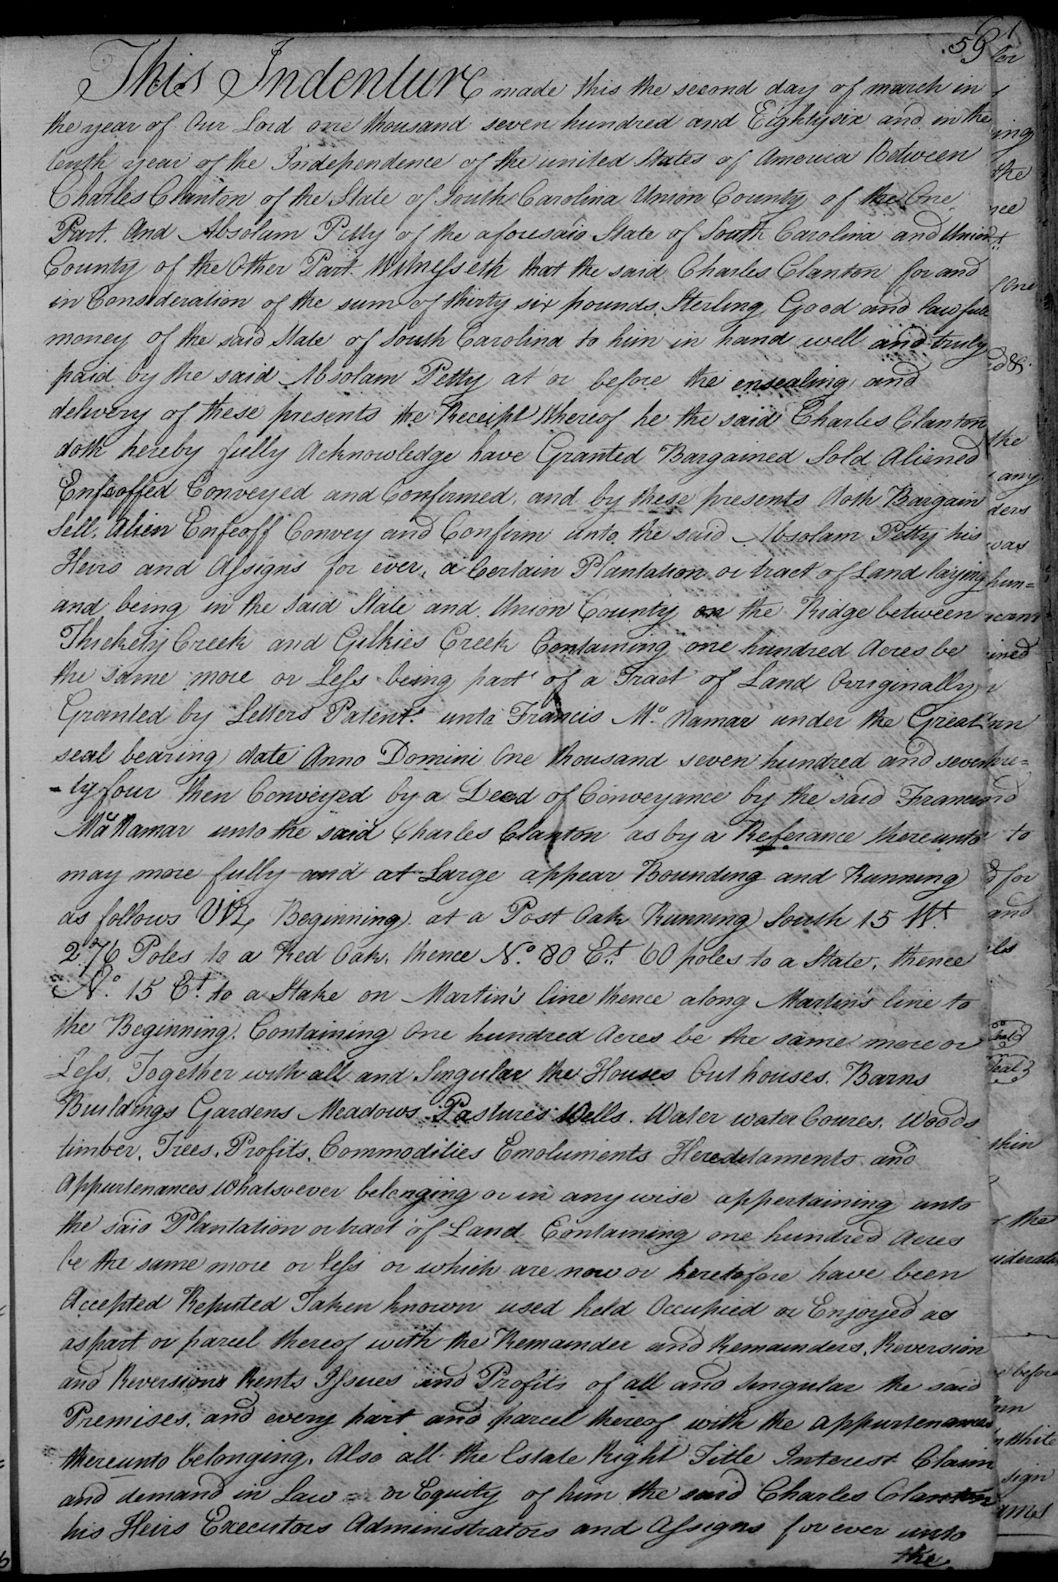 59
This Indenture made this the second day of march in
the year of Our Lord one thousand seven hundred and Eightysix and in the
tenth year of the Independence of the united States of America Between
Charles Clanton of the State of South Carolina Union County of the One
Part. And Absolam Petty of the aforesaid State of South Carolina and Union
County of the Other Part. Witnesseth that the said Charles Clanton for and
in Consideration of the sum of thirty six pounds Sterling Good and lawfull
money of the said State of South Carolina to him in hand well and truly
paid by the said Absolam Petty at or before the ensealing and
delivery of these presents the Receipt Whereof he the said Charles Clanton
doth hereby fully Acknowledge have Granted Bargained Sold Aliened
Enfeoffed Conveyed and Confirmed, and by these presents doth Bargain
Sell, Alien Enfeoff Convey and Confirm unto the said Absolam Petty his
Heirs and Assigns for ever, a Certain Plantation or tract of Land laying
and being in the Said State and Union County on the Ridge between
Thickety Creek and Gilkies Creek Containing one hundred Acres be
the same more or Less being part of a Tract of Land Orriginally
Granted by Letters Patent unto Francis Mc. Namar under the Great
seal bearing date Anno Domini One thousand seven hundred and seven
-ty four then Conveyed by a Deed of Conveyance by the said Francis
McNamar unto the said Charles Clanton as by a Referance thereunto
may more fully and at Large appear Bounding and Running
as follows Viz Beginning at a Post Oak Running South 15 Wt.
276 Poles to a Red Oak, thence No. 80 Et. 60 poles to a State, thence
No. 15 Et. to a Stake on Martin's line thence along Martin's line to
the Beginning. Containing One hundred Acres be the same more or
Less, Together with all and Singular the Houses Out houses. Barns
Buildings Gardens Meadows Pastures Wells. Water water Coures. Woods
timber, Trees, Profits, Commodities Emoluments Hereditaments and
Appurtenances Whatsoever belonging or in any wise appertaining unto
the said Plantation or tract of Land Containing one hundred Acres
be the same more or less or which are now or heretofore have been
Accepted Reputed Taken known used held Occupied or Enjoyed as
as part or parcel thereof with the Remainder and Remainders, Reversion
and Reversions Rents Issues and Profits of all and Singular the said
Premises, and every part and parcel thereof with the appurtenances
thereunto belonging, Also all the Estate Right Title Interest Claim
and demand in Law = or Equity of him the said Charles Clanton
his Heirs Executors Administrators and Assigns for ever unto
the